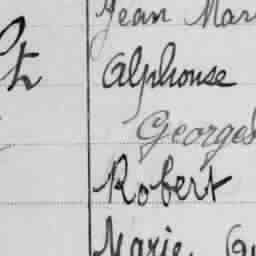 Jean Mar
Alphonse
Georges
Robert
Marie